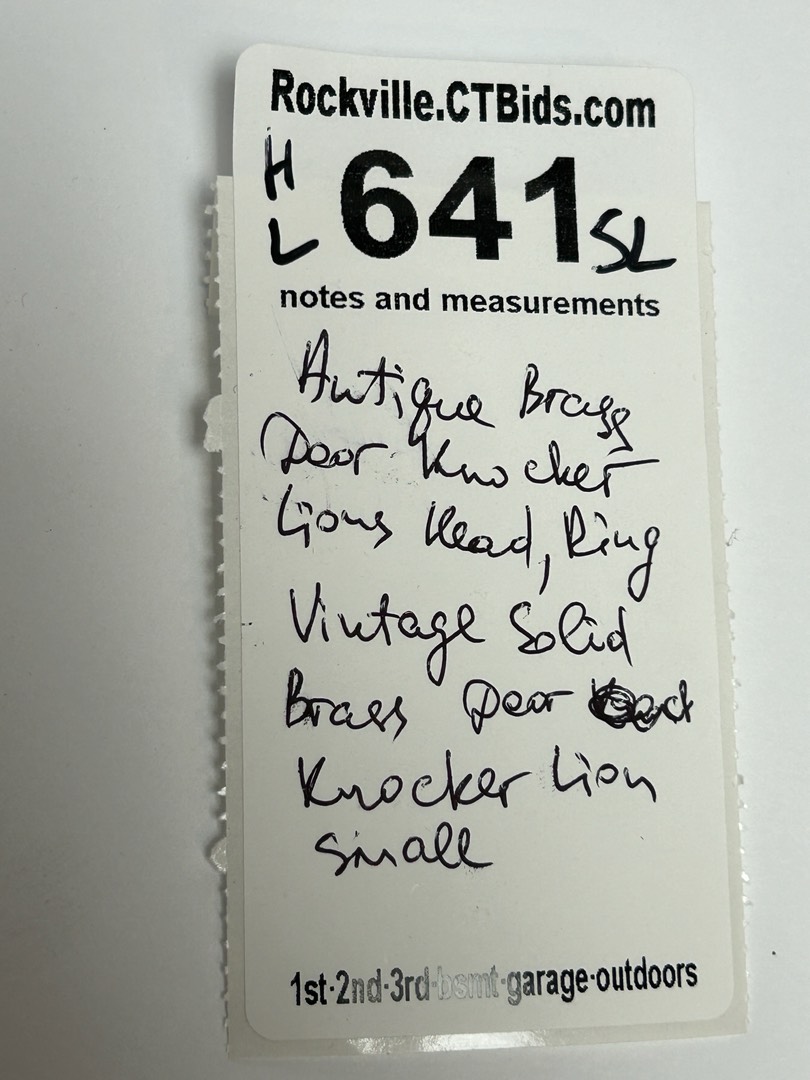 Rockville.CTBids.com
H
L 641 SL
notes and measurements
Antique Brass
Door Knocker
Lions Head, Ring
Vintage Solid
Brass Door
Knocker Lion
small
1st·2nd·3rd·bsmt·garage·outdoors